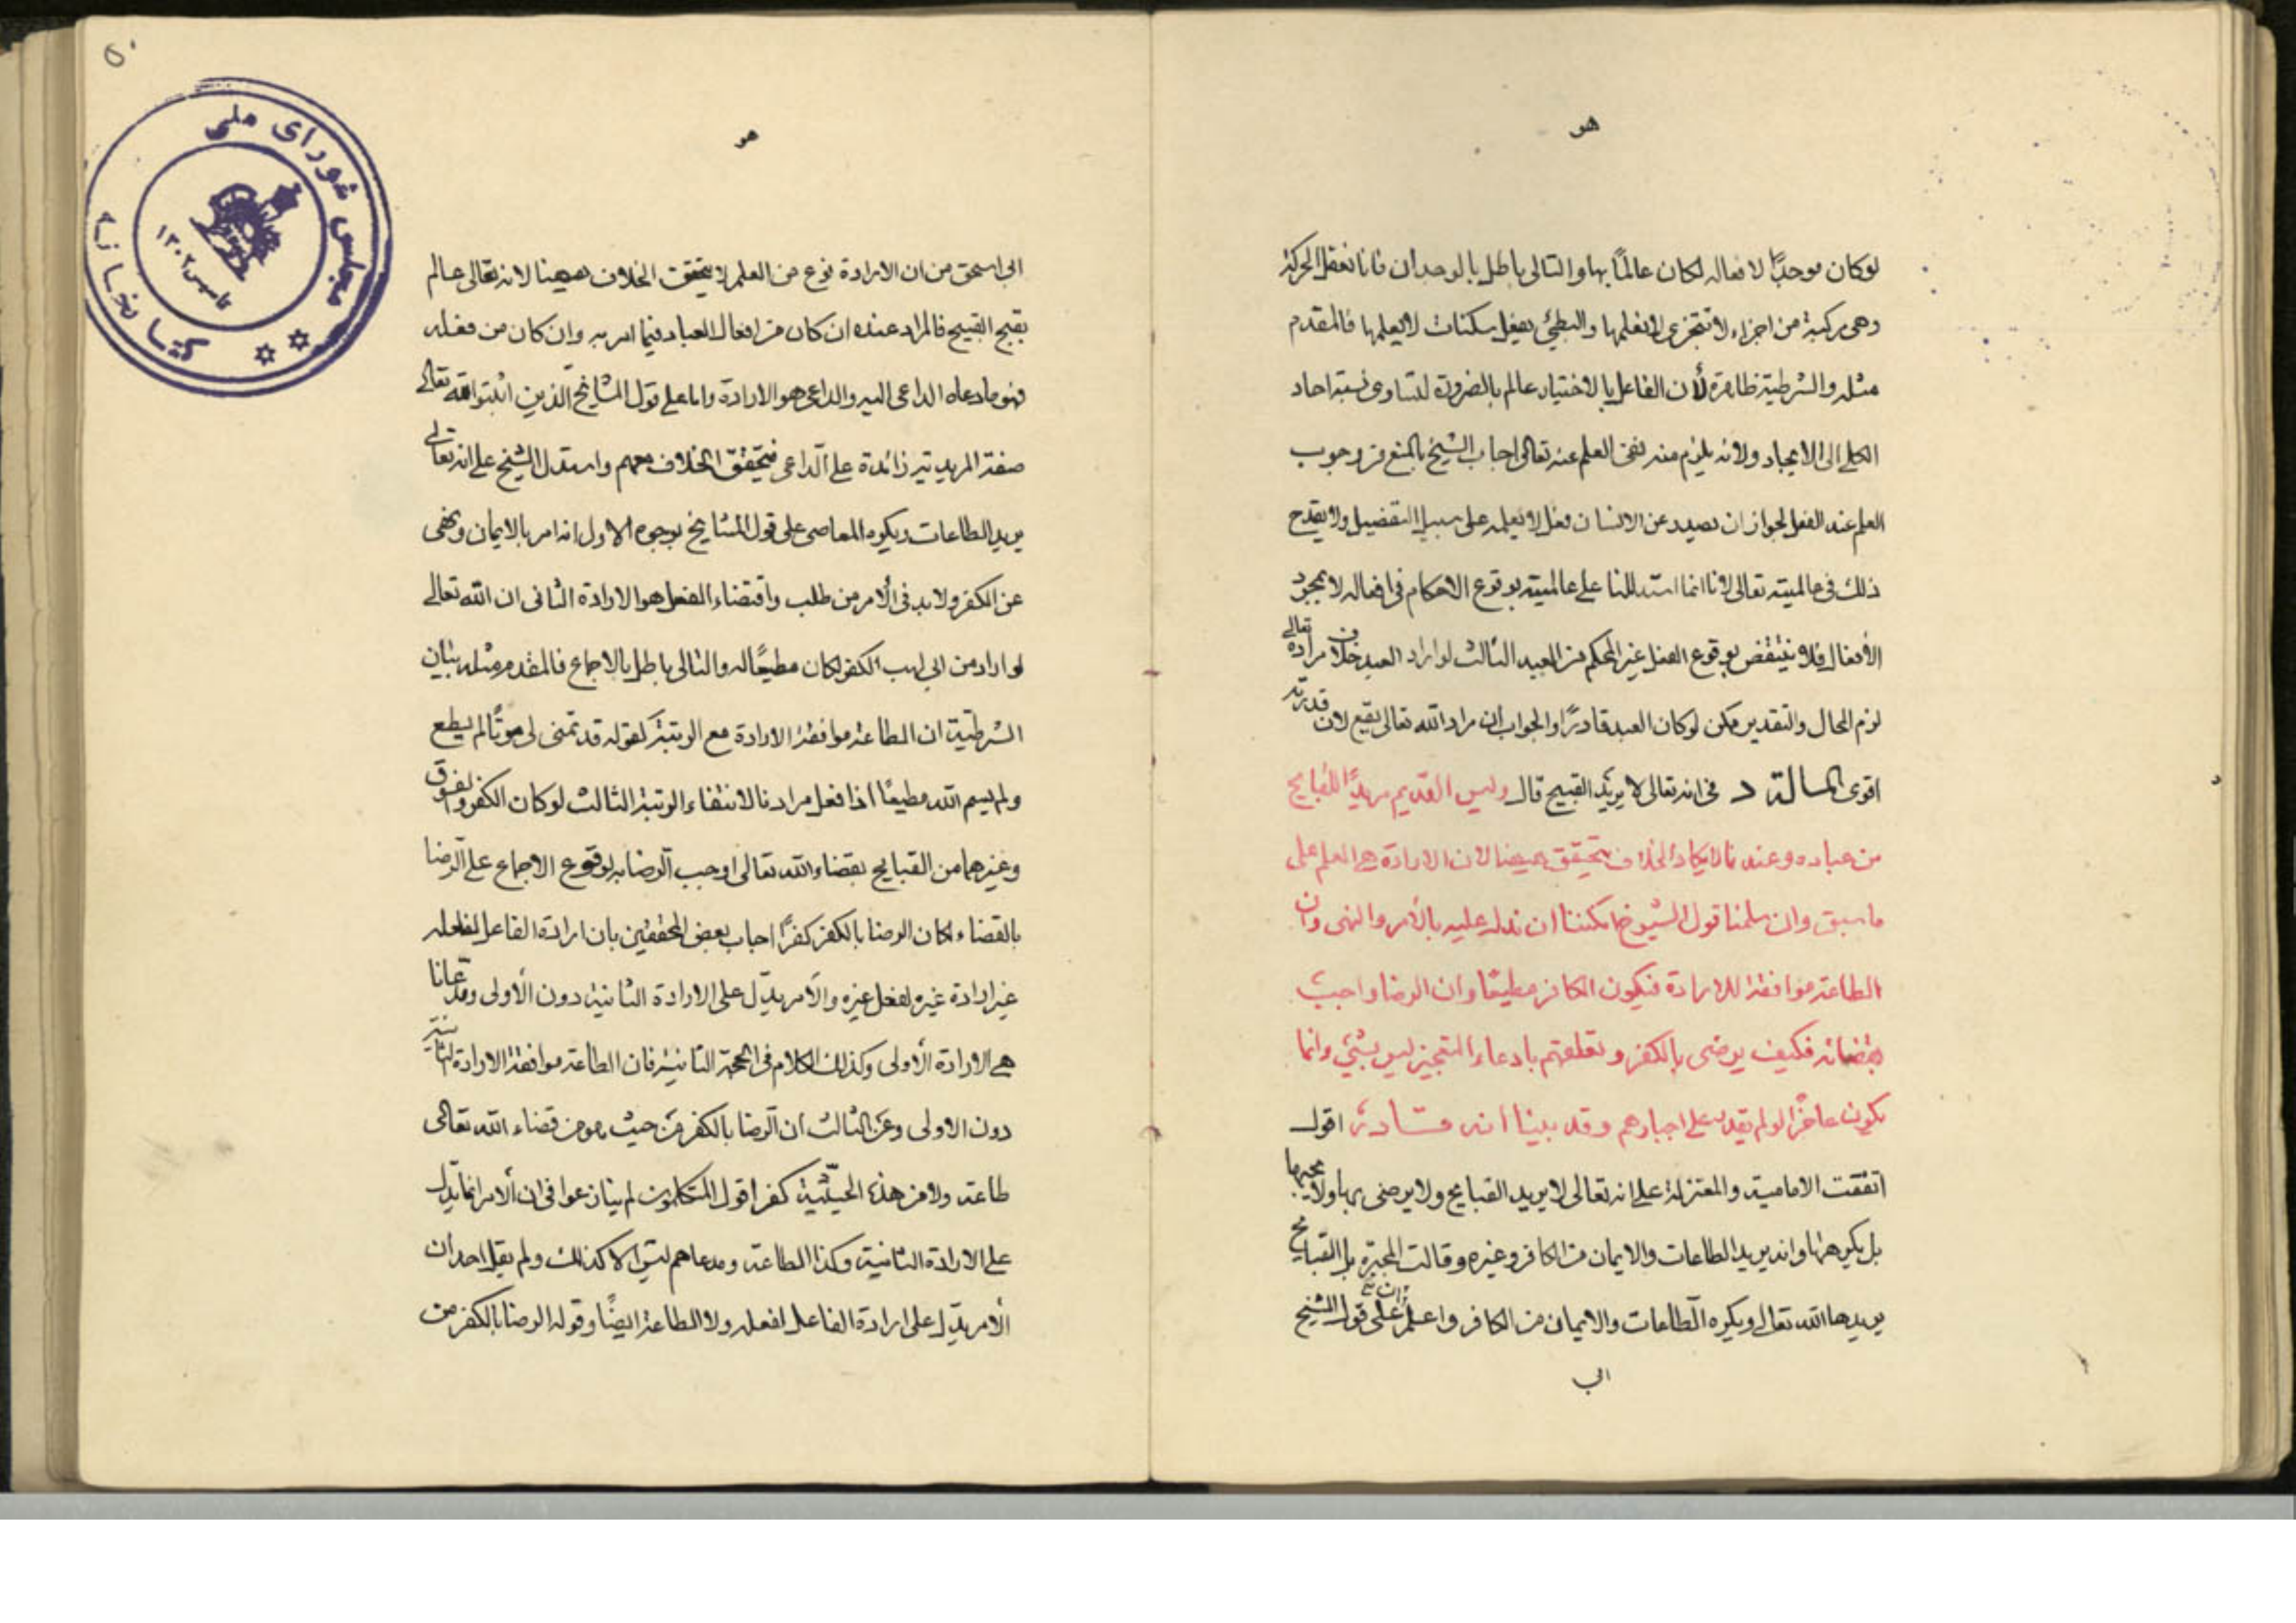 هو
لوكان موجدًا لافعاله لكان عالمًا بها والتالى باطل بالوجدان فانا نفعل الحركة
وهى مركبة من اجزاء لا تتجزى لا نعلمها والبطئ يفعل سكنات لا يعلمها فالمقدم
مثله والشرطية ظاهرة لأن الفاعل بالاختيار عالم بالضرورة لتساوى نسبة احاد
الكلى الى الايجاد ولانه يلزم منه نفى العلم عنه تعالى اجاب الشيخ بالمنع من وجوب
العلم عند الفعل لجواز ان يصدر عن الانسان فعل لا يعلمه على سبيل التفضيل ولا يقدح
ذلك فى عالميته تعالى لانا انما استدللنا على عالميته بوقوع الاحكام فى افعاله لا بمجرد
الأفعال فلا ينتقض بوقوع الفعل غير المحكم من العبد الثالث لو اراد العبد خلاف مراده تعالى
لزم المحال والتقدير ممكن لوكان العبد قادرًا والجواب ان مراد الله تعالى يقع لان قدرته
اقوى المسالة د فى انه تعالى لا يريد القبيح قال وليس القديم مريدًا للقبايح
من عباده وعندنا لا يكاد الخلاف يتحقق هيهنا لان الارادة هى العلم على
ما سبق وان سلمنا قول الشيوخ امكننا ان ندل عليه بالأمر والنهى وان
الطاعة موافقة للارادة فيكون الكافر مطيعًا وان الرضا واجب
بقضائه فكيف يرضى بالكفر وتعلقهم بادعاء التعجيز ليس بشئ وانما
يكون عاجزًا لو لم يقدر على اجبارهم وقد بينا انه قادر اقول
اتفقت الامامية والمعتزلة على انه تعالى لا يريد القبايح ولا يرضى بها ولا يحبها
بل يكرهها وانه يريد الطاعات والايمان من الكافر وغيره وقالت المجبرة بل القبايح
يريدها الله تعالى ويكره الطاعات والايمان من الكافر واعلم ان على قول الشيخ
ابى
٥٠
هو
ابى اسحق من ان الارادة نوع من العلم لا يتحقق الخلاف هيهنا لانه تعالى عالم
بقبح القبيح فالمراد عنده ان كان من افعال العباد فيما امر به وان كان من فعله
فهو ما دعاه الداعى اليه والداعى هو الارادة واما على قول المشايخ الذين اثبتوا لله تعالى
صفة المريدية زائدة على الداعى فيتحقق الخلاف معهم واستدل الشيخ على انه تعالى
يريد الطاعات ويكره المعاصى على قول المشايخ بوجوه الاول انه امر بالايمان ونهى
عن الكفر ولا بد فى الأمر من طلب واقتضاء الفعل هو الارادة الثانى ان الله تعالى
لو اراد من ابى لهب الكفر لكان مطيعًا له والتالى باطل بالاجماع فالمقدم مثله بيان
الشرطية ان الطاعة موافقة الارادة مع الرتبة كقوله قد تمنى لى موتًا لم يطع
ولم يسم الله مطيعًا اذا فعل مرادنا لانتفاء الرتبة الثالث لوكان الكفر والفسوق
وغيرهما من القبايح بقضاء الله تعالى اوجب الرضا به لوقوع الاجماع على الرضا
بالقضاء لكان الرضا بالكفر كفرًا اجاب بعض المحققين بان ارادة الفاعل لفعله
غير ارادة غيره لفعل غيره والأمر يدل على الارادة الثانية دون الأولى ومدعانا
هى الارادة الأولى وكذلك الكلام فى الحجة الثانية فان الطاعة موافقة الارادة الثانية
دون الاولى وعن الثالث ان الرضا بالكفر من حيث هو من قضاء الله تعالى
طاعة ولا من هذه الحيثية كفر اقول المتكلمون لم يتنازعوا فى ان الأمر انما يدل
على الارادة الثانية وكذا الطاعة ومدعاهم ليس الا كذلك ولم يقل احد ان
الأمر يدل على ارادة الفاعل لفعله ولا الطاعة ايضًا وقوله الرضا بالكفر من
مجلس شوراى ملى
كتابخانه